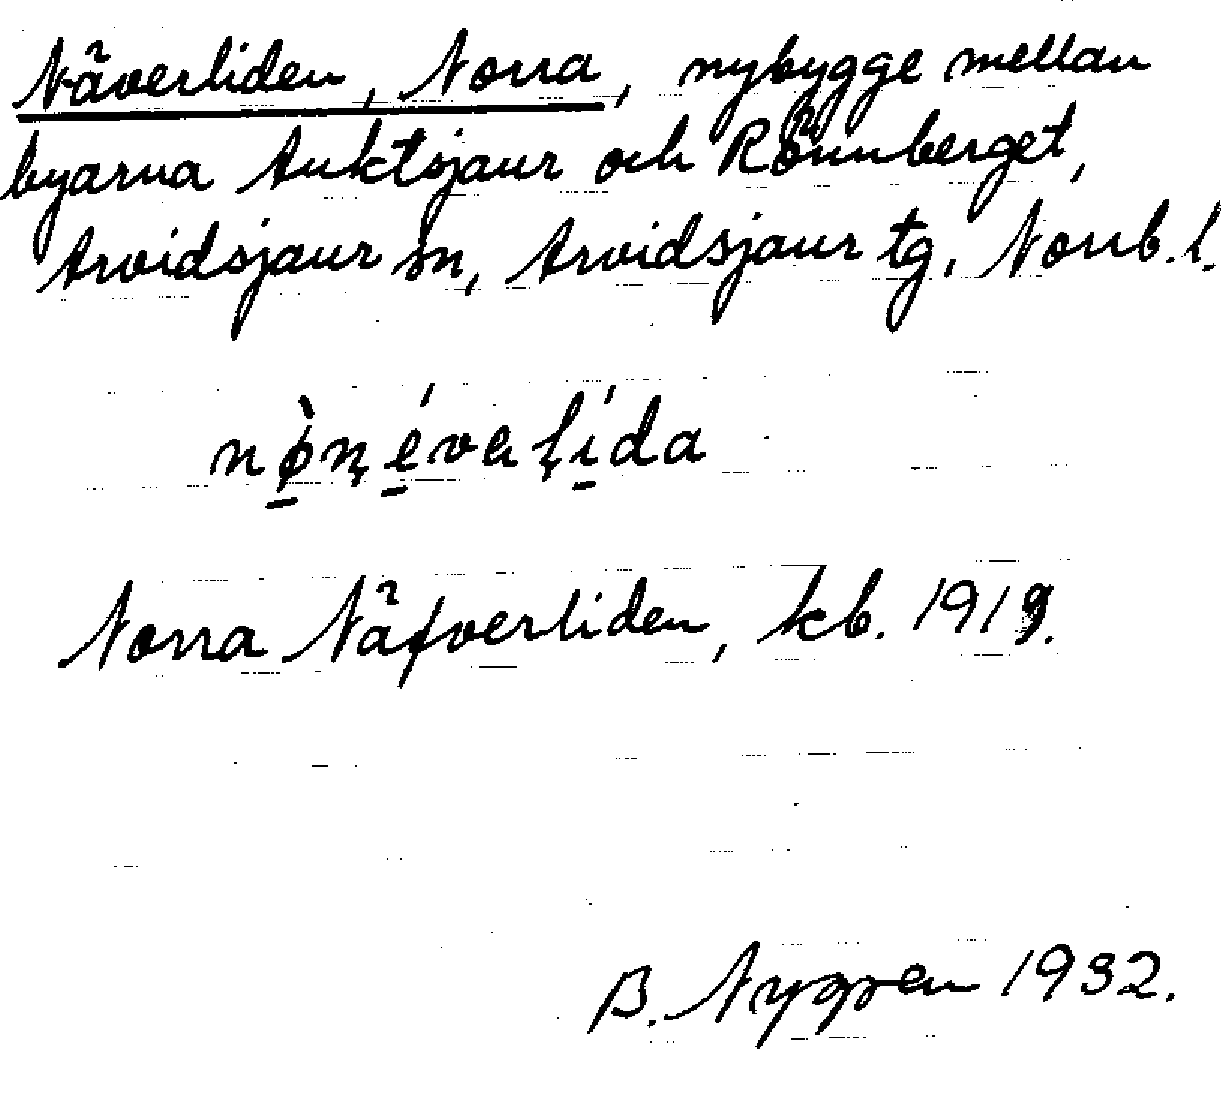 Näverliden, Norra, nybygge mellan
byarna Auktsjaur och Rönnberget,
Arvidsjaur sn, Arvidsjaur tg, Norrb. l.
Norra Näfverliden, kb. 1919.
B. Nygren 1932.